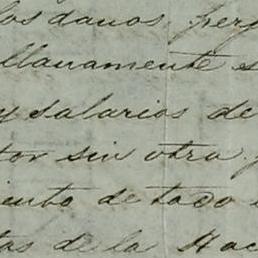 los danos, perj
llanamente s
y salarios de
tor sin otra
iento de todo
tas de la Hac